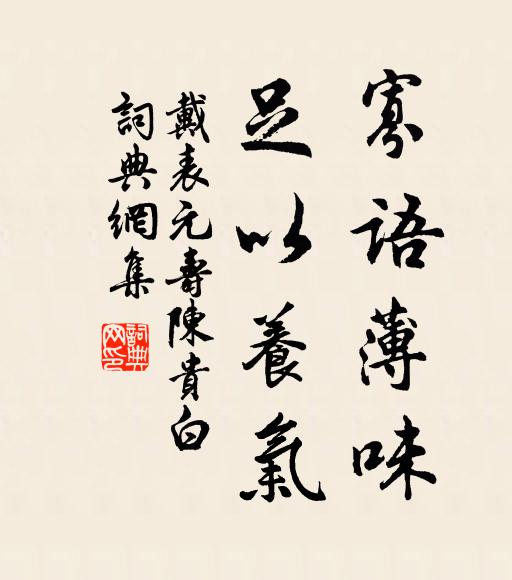 寡語薄味
足以養氣
戴表元壽陳貴白
詞典網集
詞典網印